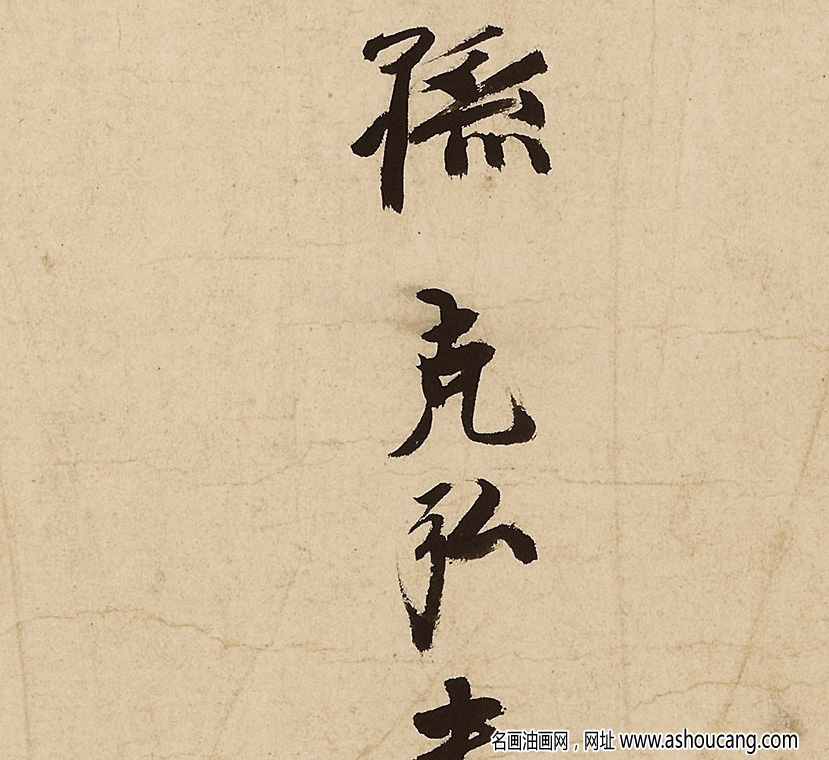 孫克弘
名画油画网，网址 www.ashoucang.com